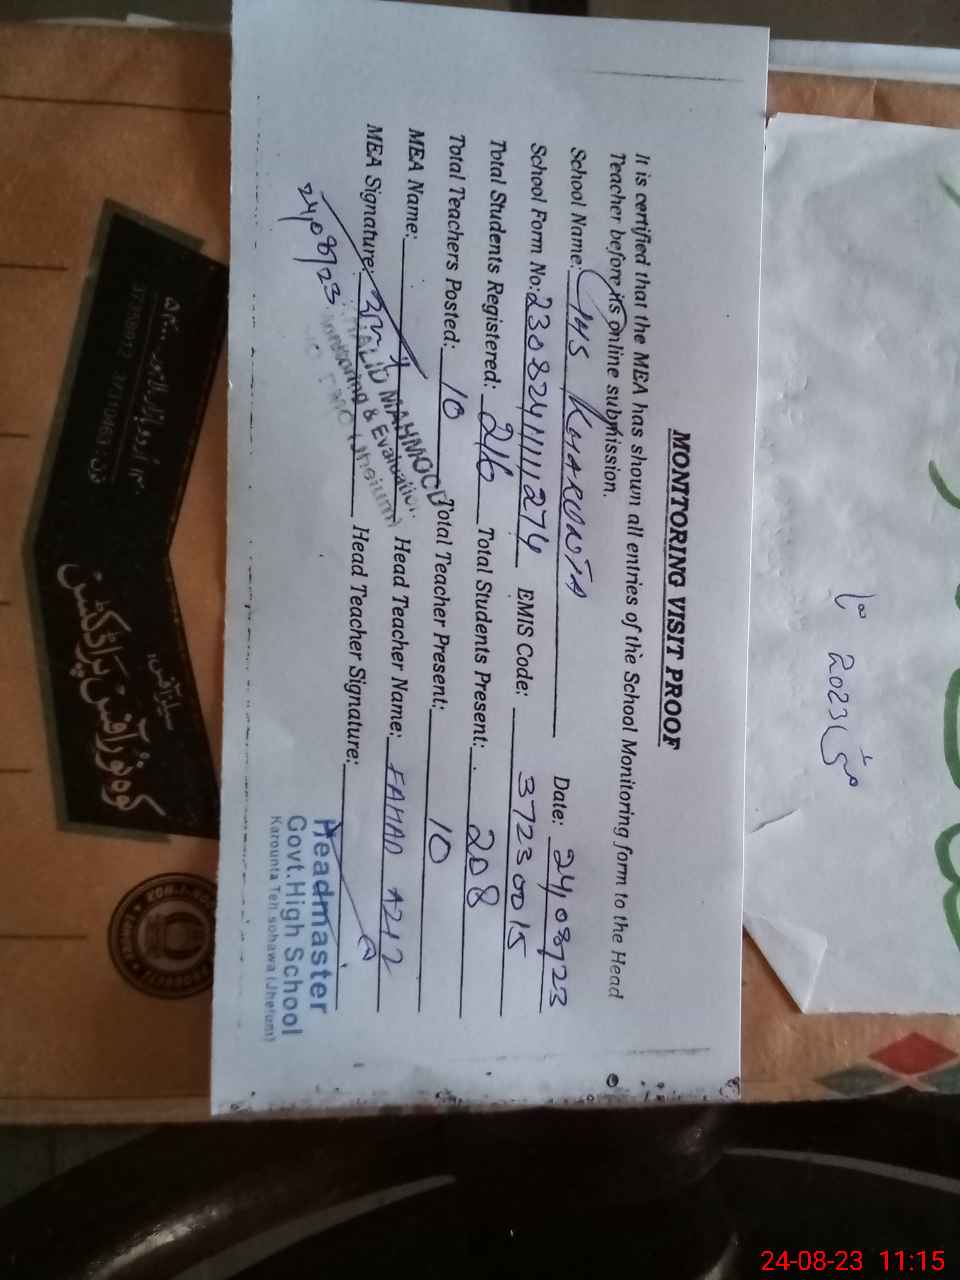 MONITORING VISIT PROOF
It is certified that the MEA has shown all entries of the School Monitoring form to the Head
Teacher before its online submission.
School Name: GHS KHARUNTA Date: 24/08/23
School Form No: 230824111111274 EMIS Code: 37230015
Total Students Registered: 216 Total Students Present: 208
Total Teachers Posted: 10 Total Teacher Present: 10
MEA Name: Head Teacher Name: FAHAD AZIZ
MEA Signature: Head Teacher Signature:
24/08/23
KHALID MAHMOOD
Monitoring & Evaluation
(Jhelum)
Headmaster
Govt.High School
Karounta Teh.sohawa (Jhelum)
2023
کوہ نور آفس پراڈکٹس
24-08-23 11:15